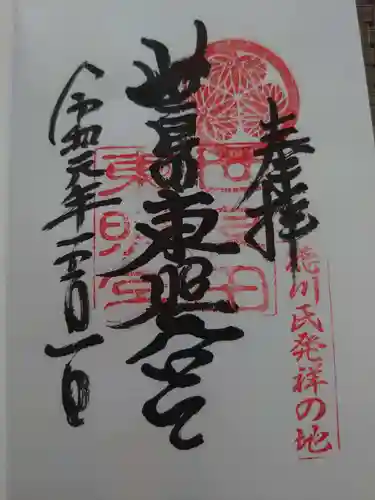 奉拝
徳川氏発祥の地
世良田東照宮
世良田
東照宮
令和元年十二月一日